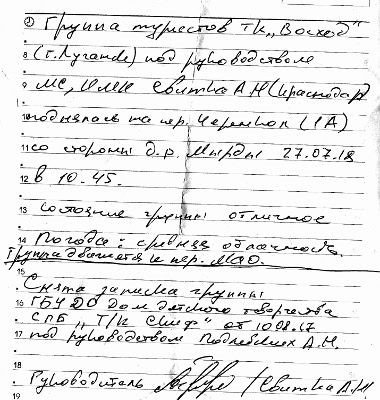 ⑦ Группа туристов ТК „Восход"
8 (г. Луганск) под руководством
9 МС, ИМК Свитка А Н (Краснодар)
10 поднялась на пер. Черепол (1А)
11 со стороны д.р. Мырды 27.07.18
12 в 10.45.
13 состояние группы отличное
14 Погода: средняя облачность.
Группа движется к пер. МАО.
15
Снята записка группы
16 ГБУ ДО Дом детского творчества
СПБ „Т/К Скиф" от 10.08.17
17 под руководством А.Н.
18
Руководитель Свитка А.Н
19